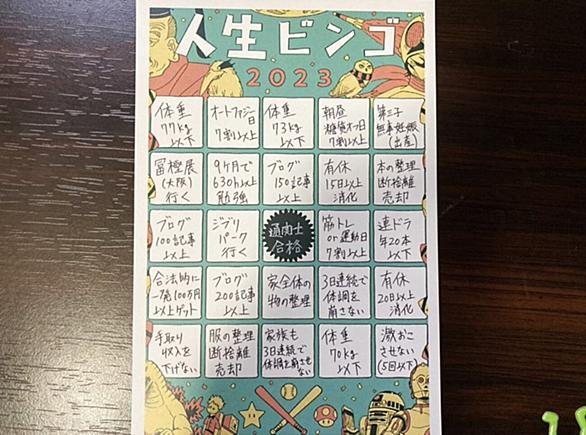 人生ビンゴ
2023
体重
77kg
以下
オートファジー
日
7割以上
体重
73kg
以下
朝昼
糖質オフ日
7割以上
第三子
無事妊娠
(出産)
冨樫展
(大阪)
行く
9ヶ月で
630h以上
勉強
ブログ
150記事
以上
有休
15日以上
消化
本の整理
断捨離
売却
ブログ
100記事
以上
ジブリ
パーク
行く
通関士
合格
筋トレ
or運動日
7割以上
連ドラ
年20本
以下
合法的に
一発100万
以上ゲット
ブログ
200記事
以上
家全体の
物の整理
3日連続で
体調を
崩さない
有休
20日以上
消化
手取り
収入を
下げない
服の整理
断捨離
売却
家族も
3日連続で
体調を崩させない
体重
70kg
以下
激おこ
させない
(5回以下)